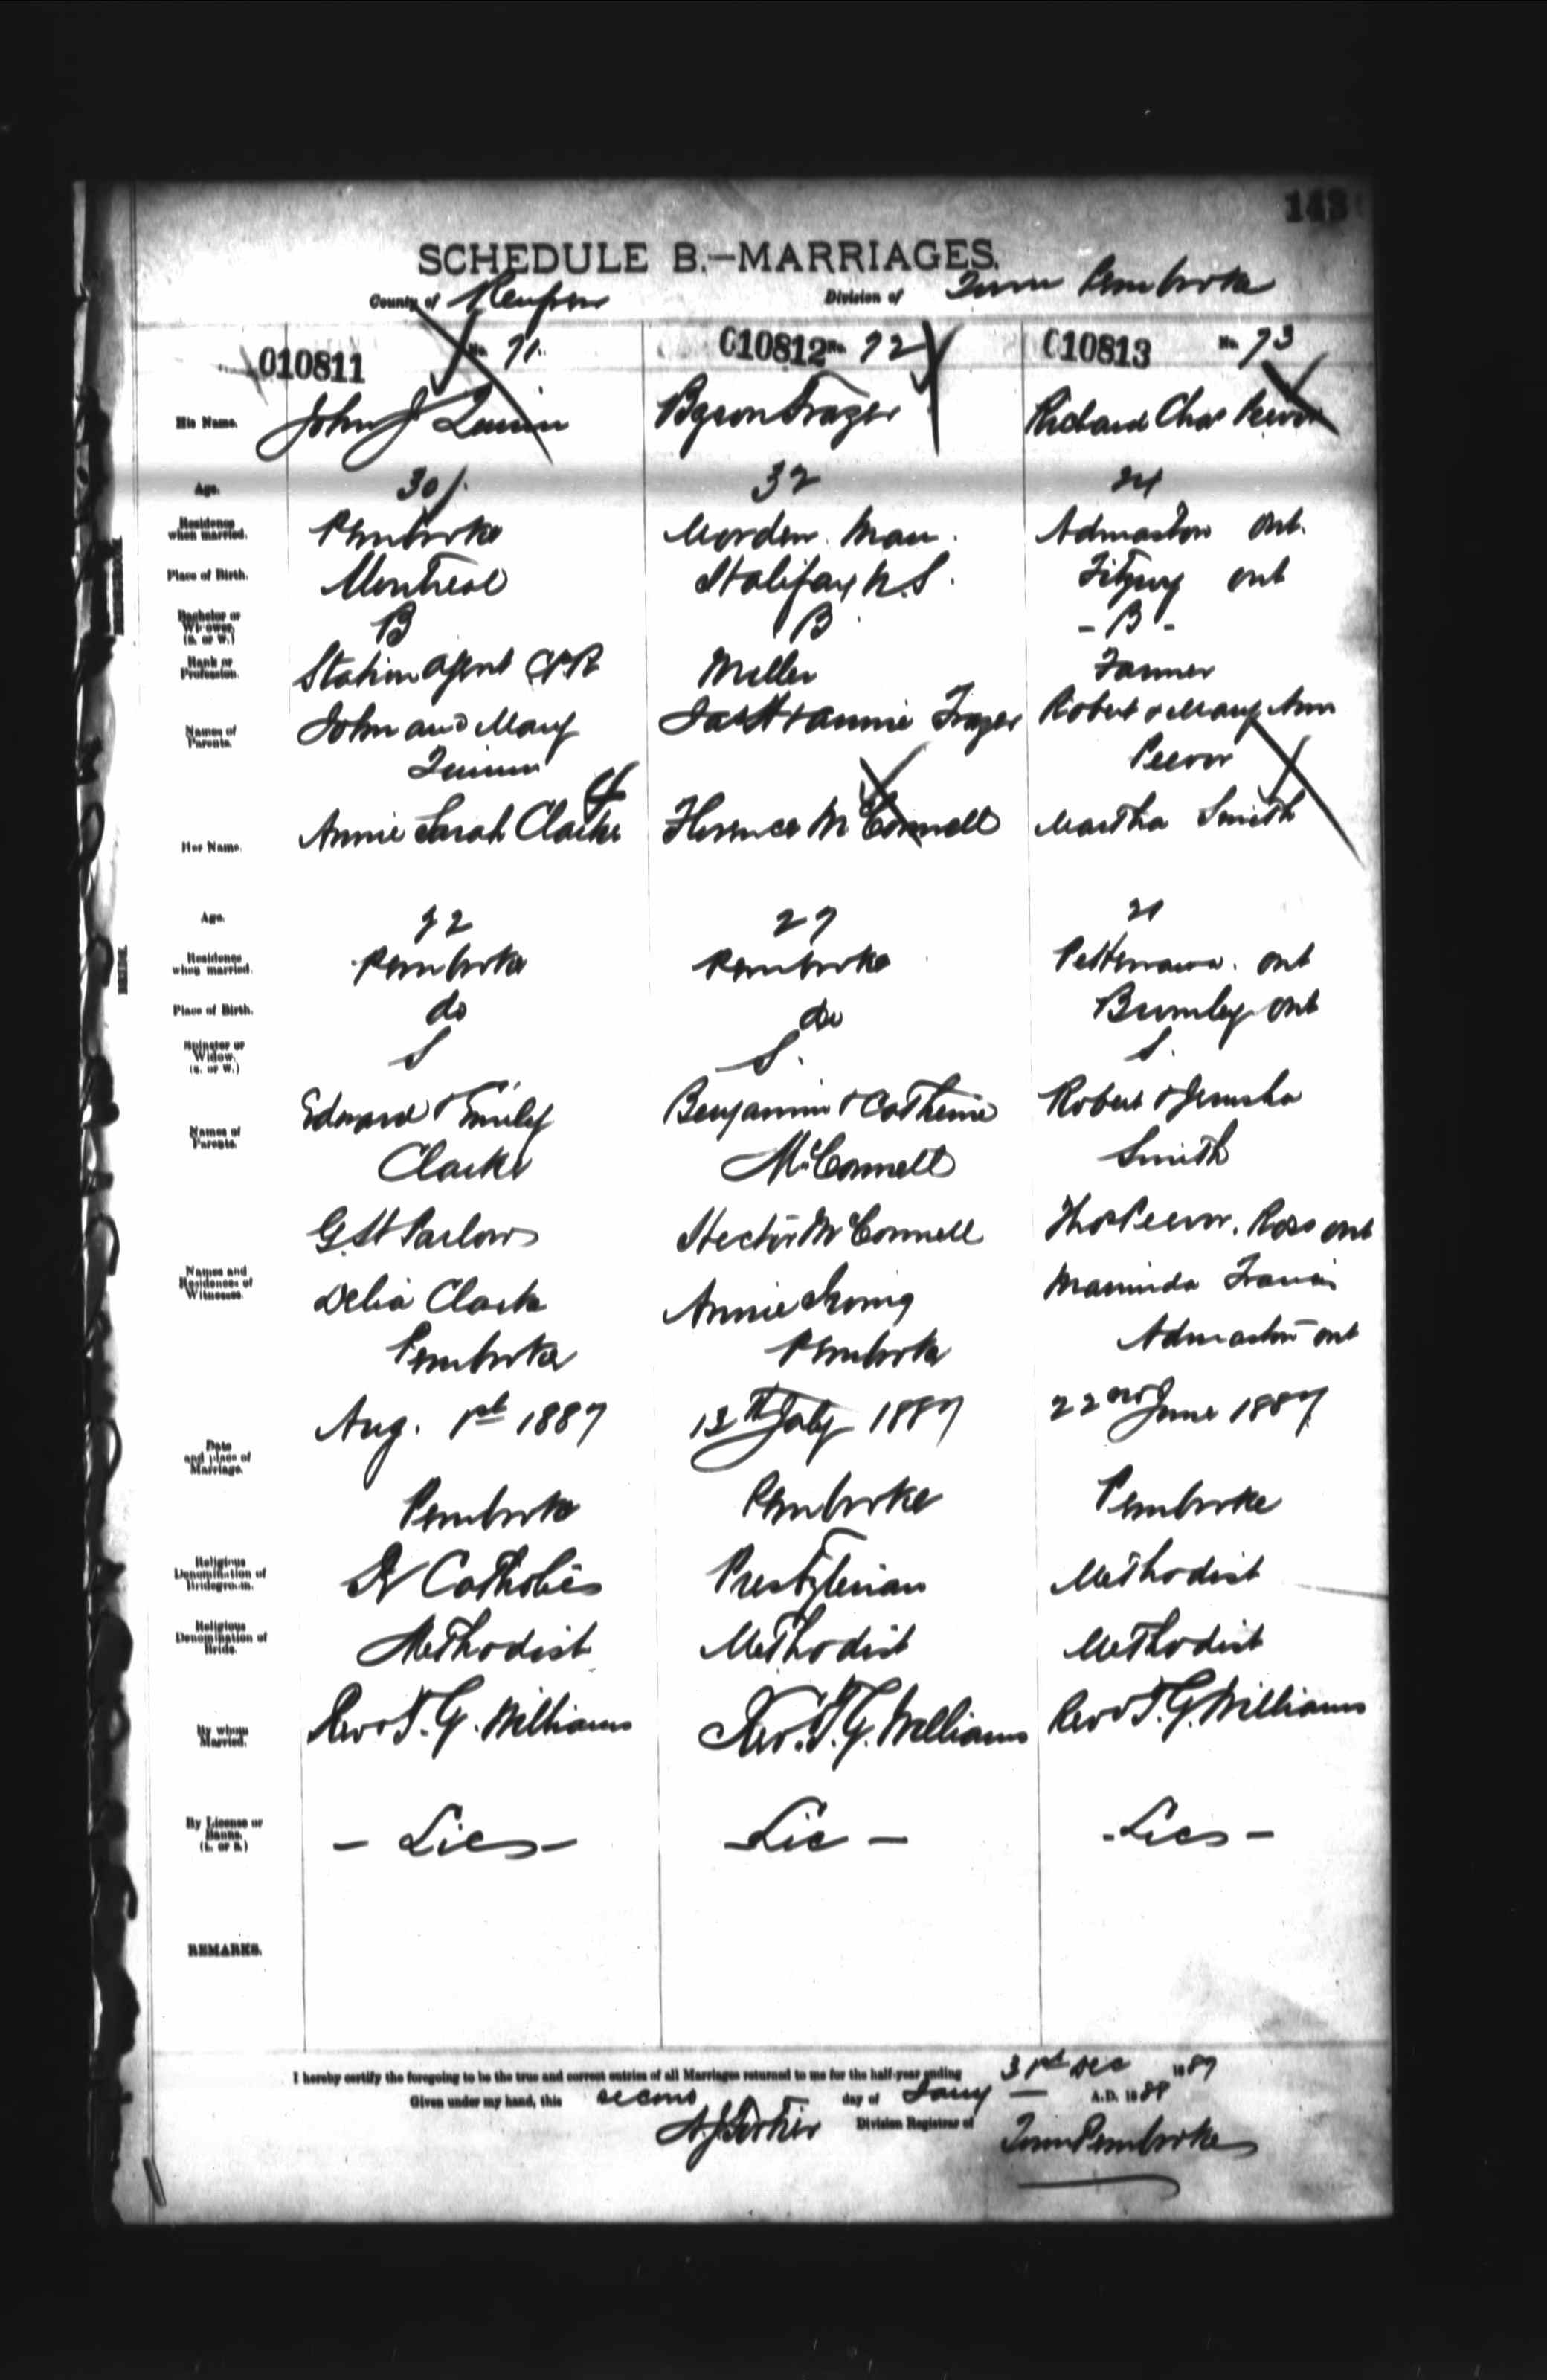 143
SCHEDULE B.—MARRIAGES.
County of Renfrew Division of Town Pembroke
010811 No. 71. 010812 No. 72 010813 No. 73
His Name. John J Quinn Byron Frazer Richard Chas Peever
Age. 30 32 24
Residence when married. Pembroke Morden. Man. Admaston Ont.
Place of Birth. Montreal Halifax N.S. Fitzroy Ont
Bachelor or Widower. (B. or W.) B B - B -
Rank or Profession. Station Agent CPR Miller Farmer
Names of Parents. John and Mary Jas H & Annie Frazer Robert & Mary Ann
Quinn Peever
Her Name. Annie Sarah Clarke Florence McConnell Martha Smith
Age. 22 27 21
Residence when married. Pembroke Pembroke Pettewawa. Ont
Place of Birth. do do Bromley Ont
Spinster or Widow. (S. or W.) S S. S.
Names of Parents. Edward & Emily Benjamin & Catherine Robert & Jerusha
Clarke McConnell Smith
G. H Parlow Hector McConnell Thos Peever. Ross Ont
Names and Residences of Witnesses. Delia Clark Annie Irving Francis
Pembroke Pembroke Admaston Ont
Date and place of Marriage. Aug. 1st 1887 13th July 1887 22nd June 1887
Pembroke Pembroke Pembroke
Religious Denomination of Bridegroom. R Catholic Presbyterian Methodist
Religious Denomination of Bride. Methodist Methodist Methodist
By whom Married. Rev T. G. Williams Rev. T. G. Williams Rev T. G. Williams
By License or Banns. (L. or B.) - Lics - - Lic - - Lics -
REMARKS.
I hereby certify the foregoing to be the true and correct entries of all Marriages returned to me for the half-year ending 31st Dec 1887
Given under my hand, this second day of Jany — A.D. 1888
Division Registrar of Town Pembroke